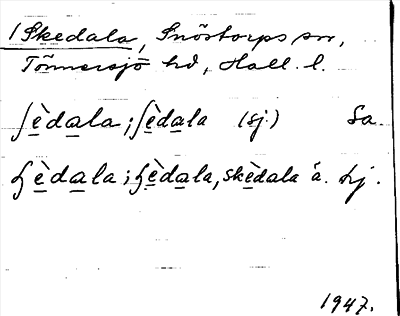 1 Skedala, Snöstorps sn,
Tönnersjö hd, Hall. l.
ʃèdala; ʃèdala (sj.) Sa.
ɧèdala; ɧèdala, skèdala ä. Lj.
1947.